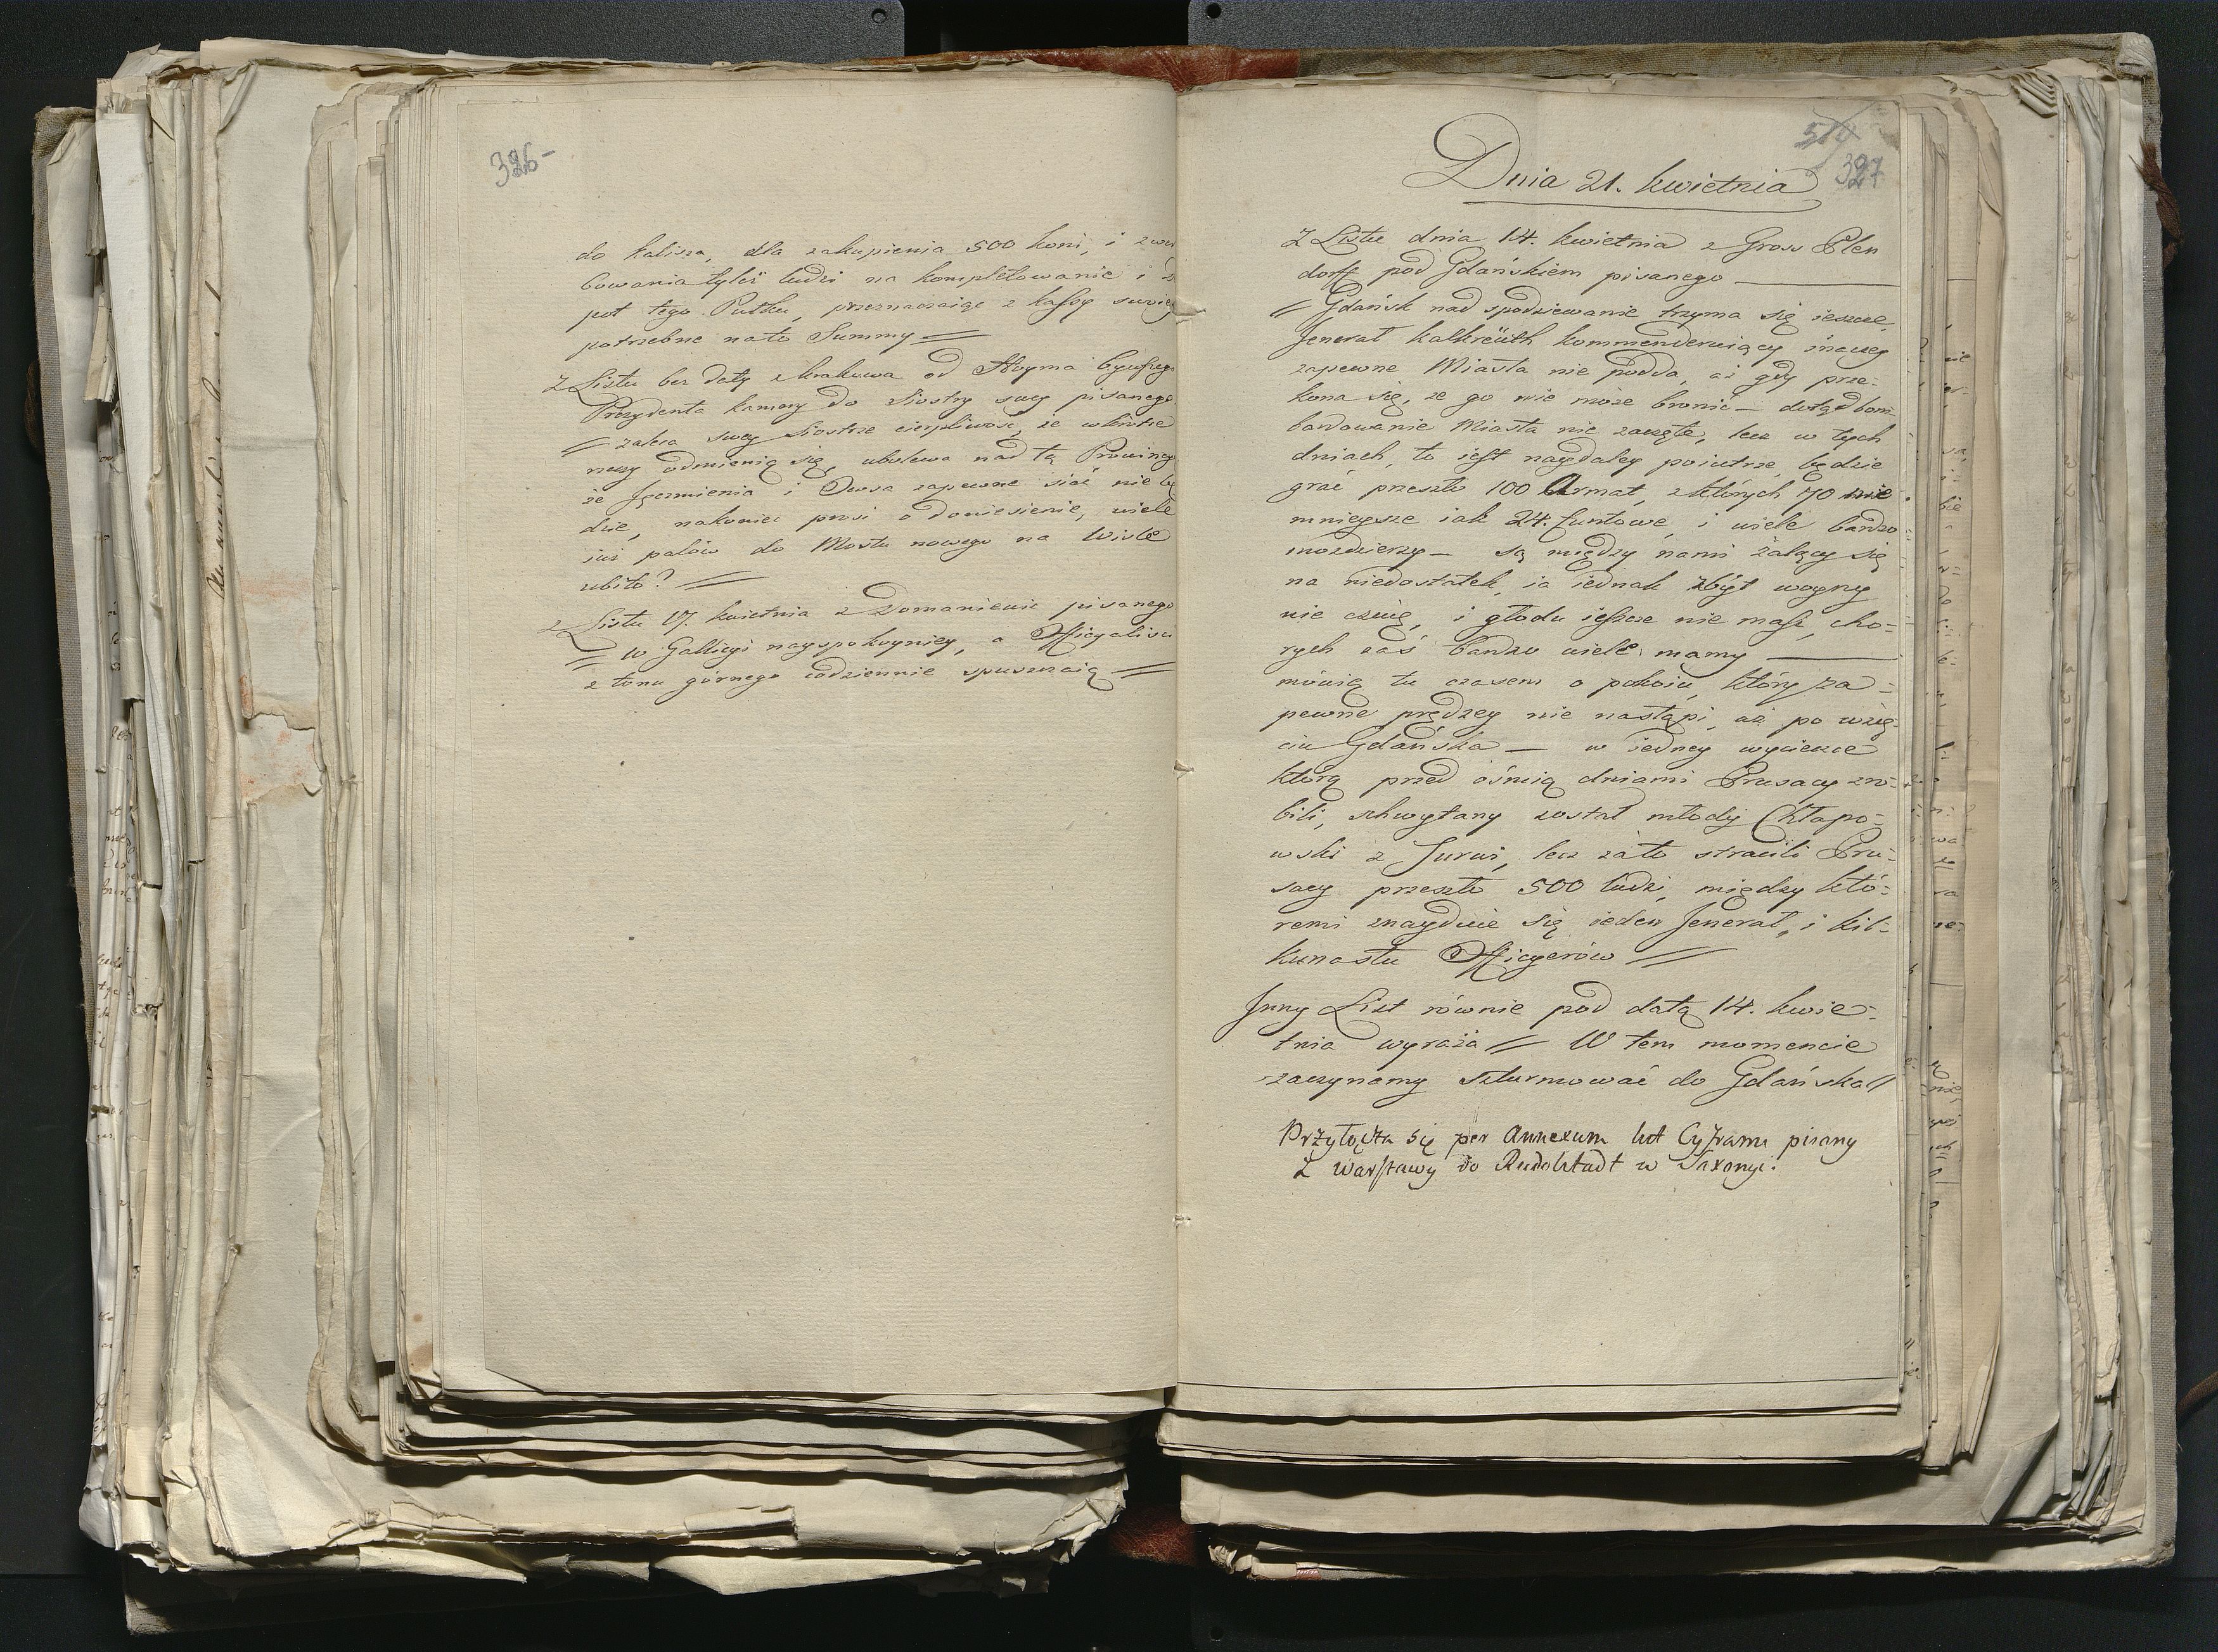 326-
do Kalisza, dla zakupienia 500 koni, i zwer
bowania tyleż ludzi na komplетowanie i
pot tego Pułku, przeznaczaiąc z Kassy swoiey
potrzebne nato Summy //
Z Listu bez daty z Krakowa od Hoyma
Prezydenta Kamery do Siostry swey pisanego
// zaleca swey Siostrze cierpliwość, że wkrótce
rzeczy odmienią się, ubolewa nad tą Prowincyą
że Jęczmienia i Owsa zapewne siać nie bę
dzie, nakoniec prosi o doniesienie, wiele
już palów do Mostu nowego na Wiśle
ubito? //
Z Listu 17. kwietnia z Domaniewic pisanego
// w Gallicyi nayspokoyniey, a Officyaliści
z tonu górnego codziennie spuszczaią //
514
327
Dnia 21. kwietnia
Z Listu dnia 14. kwietnia z Gross Plen
dorff pod Gdańskiem pisanego
// Gdańsk nad spodziewanie trzyma się ieszcze,
Jenerał Kalkreüth kommenderuiący inaczey
zapewne Miasta nie podda, aż gdy prze-
kona się, że go nie może bronić — dotąd bom-
bardowanie Miasta nie zaczęte, lecz w tych
dniach, to iest naydaley poiutrze, będzie
grać przeszło 100 Armat, z których 70 nie
mnieysze iak 24. funtowe, i wiele bardzo
moździerzy — są między nami żalący się
na niedostatek, ia iednak zbyt woyny
nie czuię, i głodu ieszcze nie masz, cho-
rych zaś bardzo wiele mamy
mówią tu czasem o pokoiu, który za-
pewne prędzey nie nastąpi, aż po wzię-
ciu Gdańska — w iedney wycieczce
którą przed ośmią dniami Prusacy zro-
bili, schwytany został młody Chłapo-
wski z Turwi, lecz zato stracili Pru-
sacy przeszło 500 ludzi, między któ-
remi znayduie się ieden Jenerał, i kil-
kunastu Officyerów //
Inny List równie pod datą 14. kwie-
tnia wyraża // W tem momencie
zaczynamy szturmować do Gdańska //
Przyłącza się per Annexum list Cyframi pisany
z Warszawy do Rudolstadt w Saxonyi.